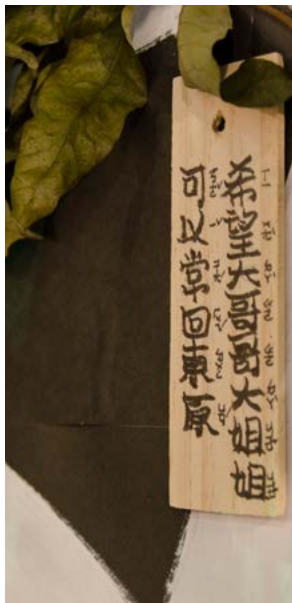 希望大哥哥大姐姐
可以常回東原